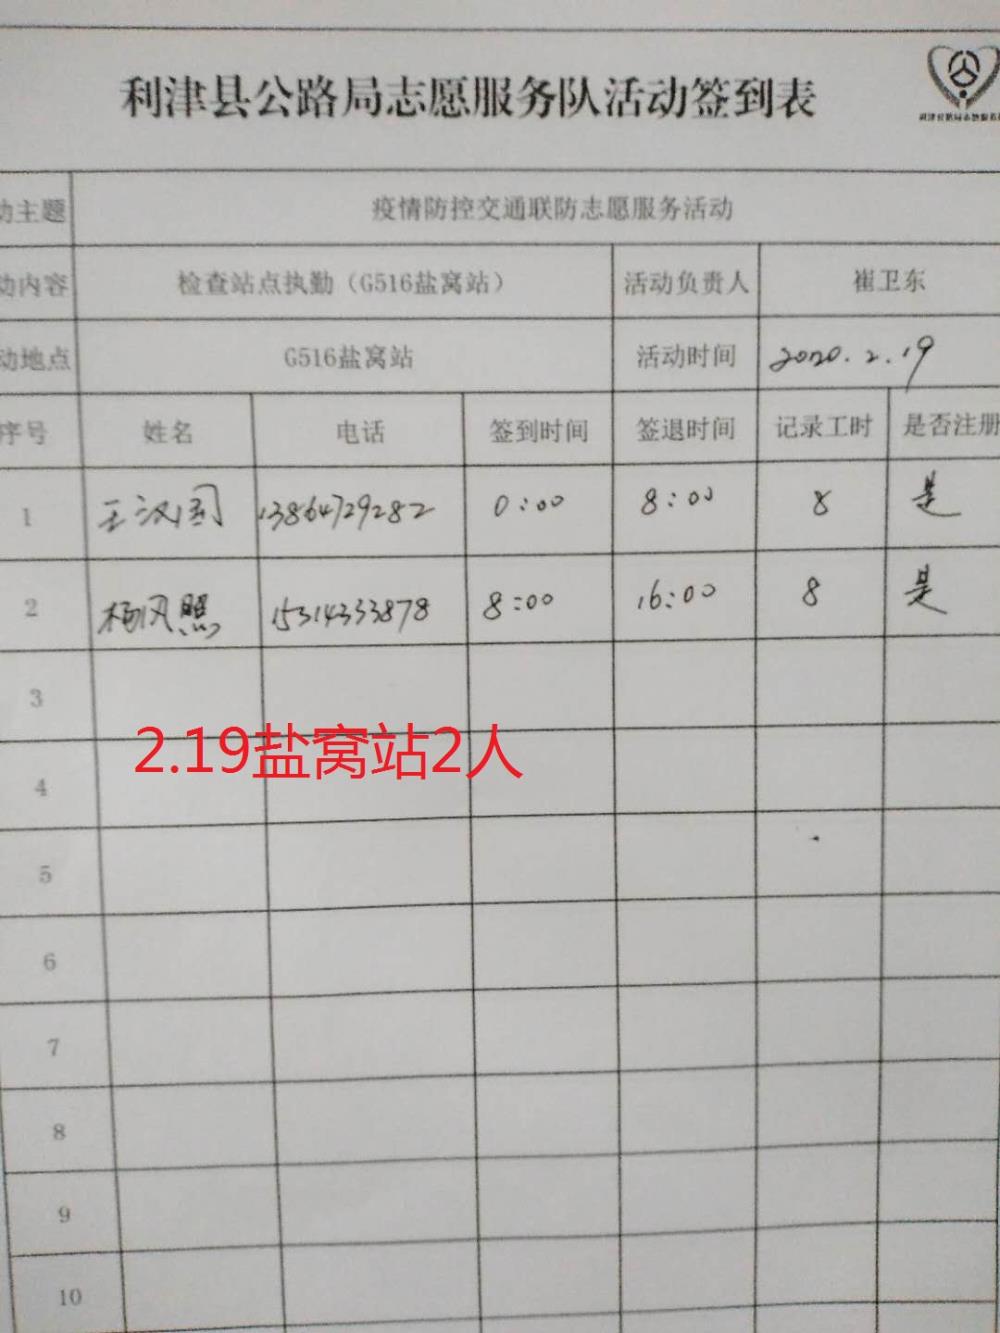 利津县公路局志愿服务队活动签到表
动主题 疫情防控交通联防志愿服务活动
动内容 检查站点执勤（G516盐窝站） 活动负责人 崔卫东
动地点 G516盐窝站 活动时间 2020.2.19
序号 姓名 电话 签到时间 签退时间 记录工时 是否注册
1 王汉国 13864729282 0:00 8:00 8 是
2 杨风照 15314333878 8:00 16:00 8 是
3
2.19盐窝站2人
4
5
6
7
8
9
10